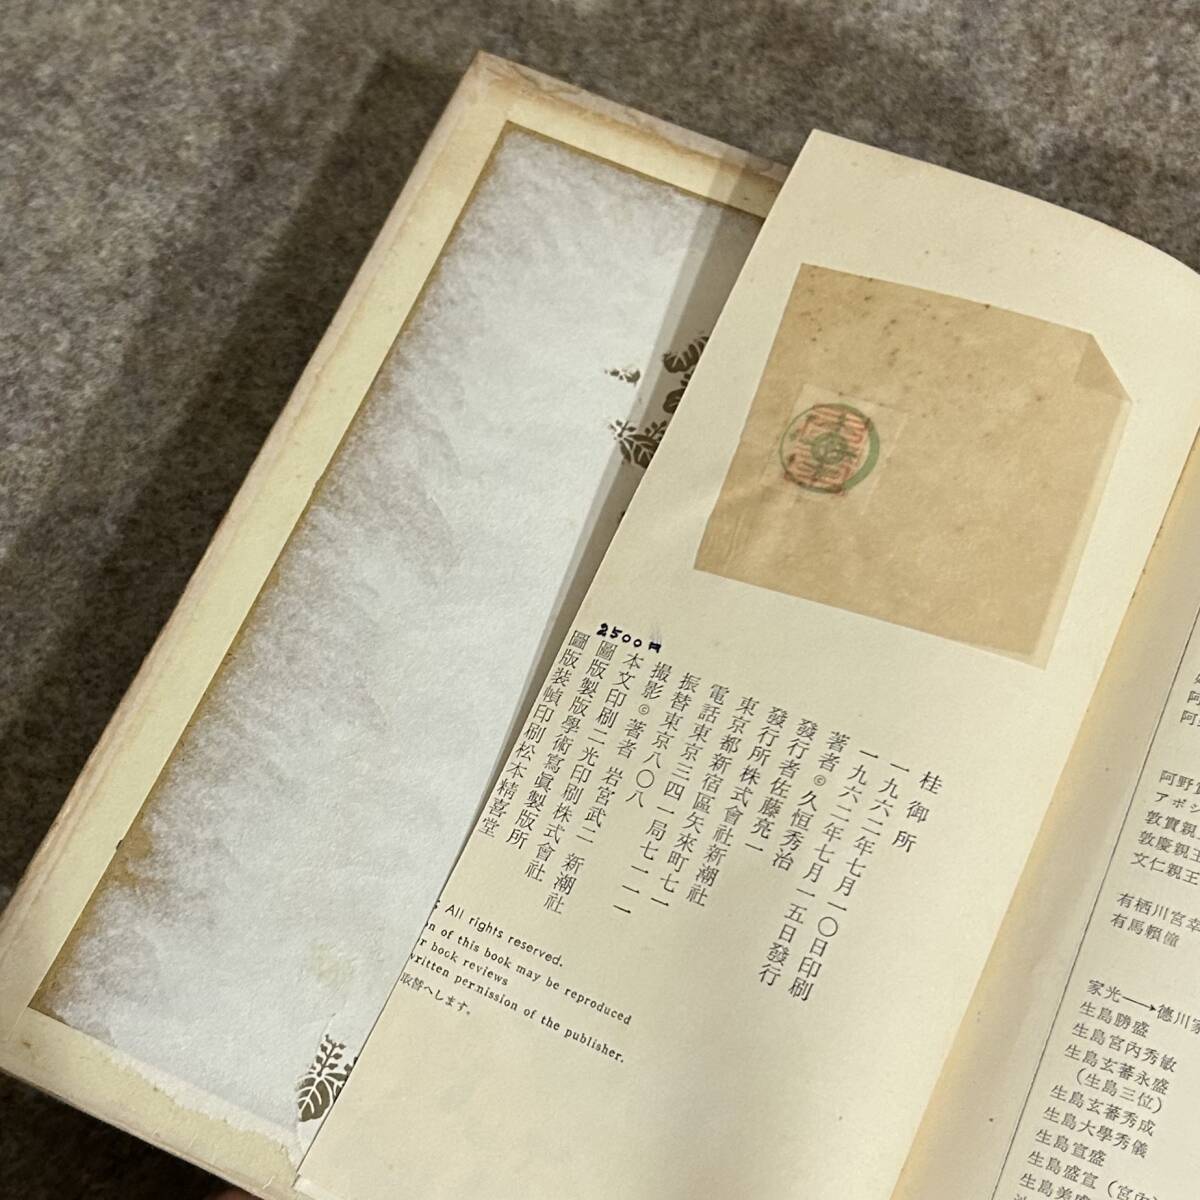 桂御所
一九六二年七月一〇日印刷
一九六二年七月一五日發行
著者©久恒秀治
發行者佐藤亮一
發行所株式會社新潮社
東京都新宿區矢來町七一
電話東京三四一局七一一一
振替東京八〇八
撮影©著者 岩宮武二
本文印刷二光印刷株式會社 新潮社
圖版製版學術寫眞製版所
圖版裝幀印刷松本精喜堂
2500円
All rights reserved.
on of this book may be reproduced
r book reviews
written permission of the publisher.
取替へします。
阿野實
アポシ
敦實親王
敦慶親王
文仁親王
有栖川宮幸
有馬頼僮
家光→德川家
生島勝盛
生島宮內秀敏
生島玄蕃永盛
(生島三位)
生島玄蕃秀成
生島大學秀儀
生島宣盛
生島盛宣(宮內
生島美盛